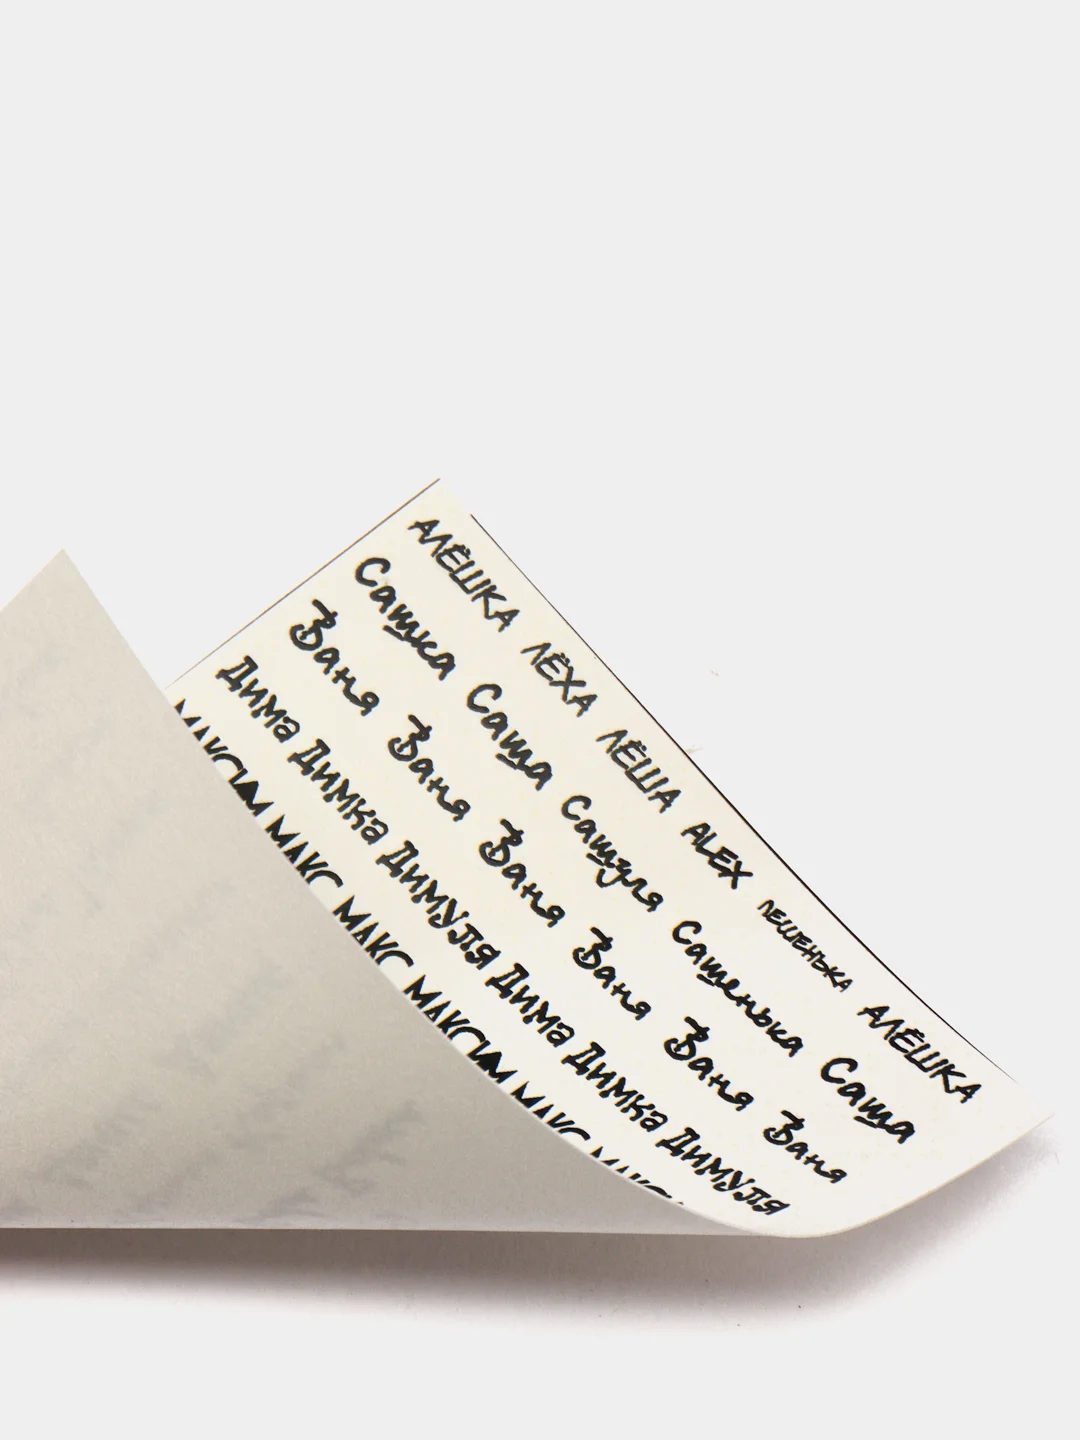 АЛЁШКА ЛЁХА ЛЁША ALEX ЛЕШЕНЬКА АЛЁШКА
Сашка Саша Сашуля Сашенька Саша
Ваня Ваня Ваня Ваня Ваня Ваня
Дима Димка Димуля Дима Димка Димуля
МАКСИМ МАКС МАКС МАКСИМ МАКС